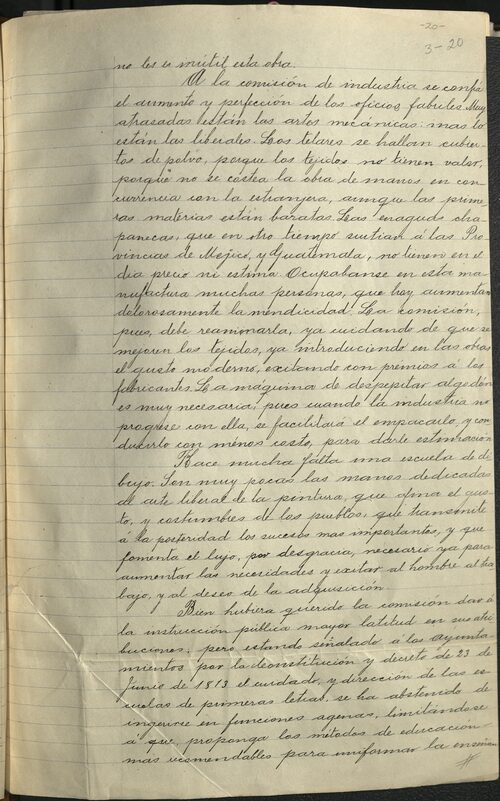 -20-
3-20
no les es inútil esta obra.
A la comisión de industria se confía
el aumento y perfección de los oficios fabriles. Muy
atrasadas están las artes mecánicas: mas lo
están las liberales. Los telares se hallan cubier-
tos de polvo, porque los tejidos no tienen valor,
porque no se costea la obra de manos, en con-
currencia con la estranjera, aunque las prime-
ras materias están baratas. Las enaguas chia-
panecas, que en otro tiempo surtian á las Pro
vincias de Mejico, y Guatemala, no tienen en el
dia precio ni estima. Ocupabanse en esta ma-
nufactura muchas personas, que hoy aumentan
dolorosamente la mendicidad. La comisión,
pues, debe reanimarla, ya cuidando de que se
mejoren los tejidos, ya introduciendo en las obras
el gusto moderno, exitando con premios á los
fabricantes. La maquina de despepitar algodón
es muy necesaria, pues cuando la industria no
progrese con ella, se facilitará el empacarlo, y con-
ducirlo con menos costo, para darle estimación
Hace mucha falta una escuela de di
bujo. Son muy pocas las manos dedicadas
al arte liberal de la pintura, que afina el gus-
to, y costumbres de los pueblos, que transmite
á la posteridad los sucesos mas importantes, y que
fomenta el lujo, por desgracia, necesario ya para
aumentar las necesidades y exitar al hombre al tra
bajo, y al deseo de la adquisición.
Bien hubiera querido la comisión dar á
la instrucción pública mayor latitud en sus atri
buciones; pero estando señalado á los ayunta-
mientos por la Constitución y decreto de 23 de
Junio de 1813 el cuidado, y dirección de las es-
cuelas de primeras letras, se ha abstenido de
ingerirse en funciones agenas, limitandose
á que, proponga los métodos de educación
mas recomendables para uniformar la enseñan